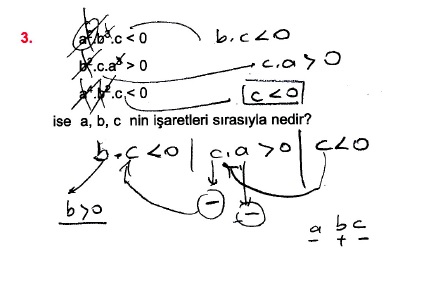 3. a².b³.c < 0 b.c<0
b².c.a³ > 0 .c.a>0
a⁴.b².c < 0 c<0
ise a, b, c nin işaretleri sırasıyla nedir?
b.c<0 | c.a>0 | c<0
b>0 − −
a b c
− + −